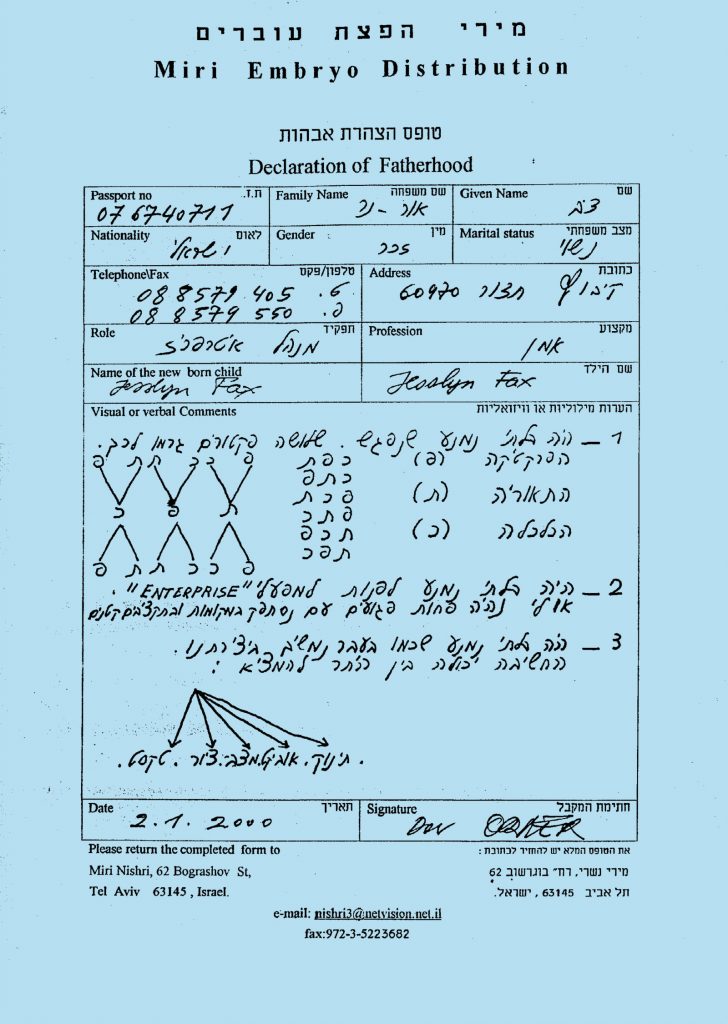 מירי הפצת עוברים
Miri Embryo Distribution
טופס הצהרת אבהות
Declaration of Fatherhood
Passport no ת.ז.
076740711
Family Name שם משפחה
אור-נר
Given Name שם
דב
Nationality לאום
ישראלי
Gender מין
זכר
Marital status מצב משפחתי
נשוי
Telephone\Fax טלפון/פקס
ט. 08 8579 405
פ. 08 8579 550
Address כתובת
קיבוץ חצור 60970
Role תפקיד
מנהל
Profession מקצוע
אמן
Name of the new born child שם הילד
Jesslyn Fax Jesslyn Fax
Visual or verbal Comments הערות מילוליות או וויזואליות
1 – היה בלתי נמנע שנפגש. שלושה פקטורים גרמו לכך.
הפרקטיקה (פ)
התאוריה (ת)
הכלכלה (כ)
כפת
כתפ
פכת
פתכ
תכפ
תפכ
פ ת ת כ כ פ
כ פ ת
פ ת ת כ כ פ
2 – היה בלתי נמנע לפנות למפעלי "ENTERPRISE".
אולי נהיה פחות פגועים עם נסתפק במקומות ובתקציבים קטנים
3 – היה בלתי נמנע שכמו בעבר נמשיך ביצירתנו.
החשיבה יכולה בין היתר להמציא:
תינוק. אוביקט. מצב. ציור. טקסט.
Date תאריך
2.1.2000
Signature חתימת המקבל
Dov OR NER
Please return the completed form to
Miri Nishri, 62 Bograshov St,
Tel Aviv 63145 , Israel.
את הטופס המלא יש להחזיר לכתובת :
מירי נשרי, רח' בוגרשוב 62
תל אביב 63145 , ישראל.
e-mail: nishri3@netvision.net.il
fax:972-3-5223682